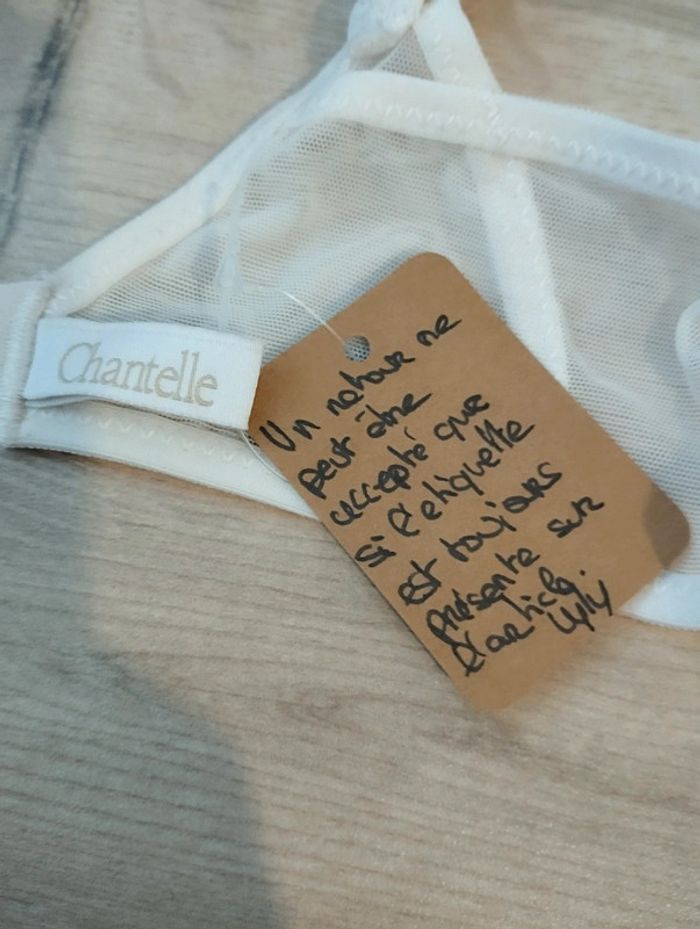 Chantelle
Un retour ne
peut être
accepté que
si l'etiquette
est toujours
présente sur
l'article.
Lyly